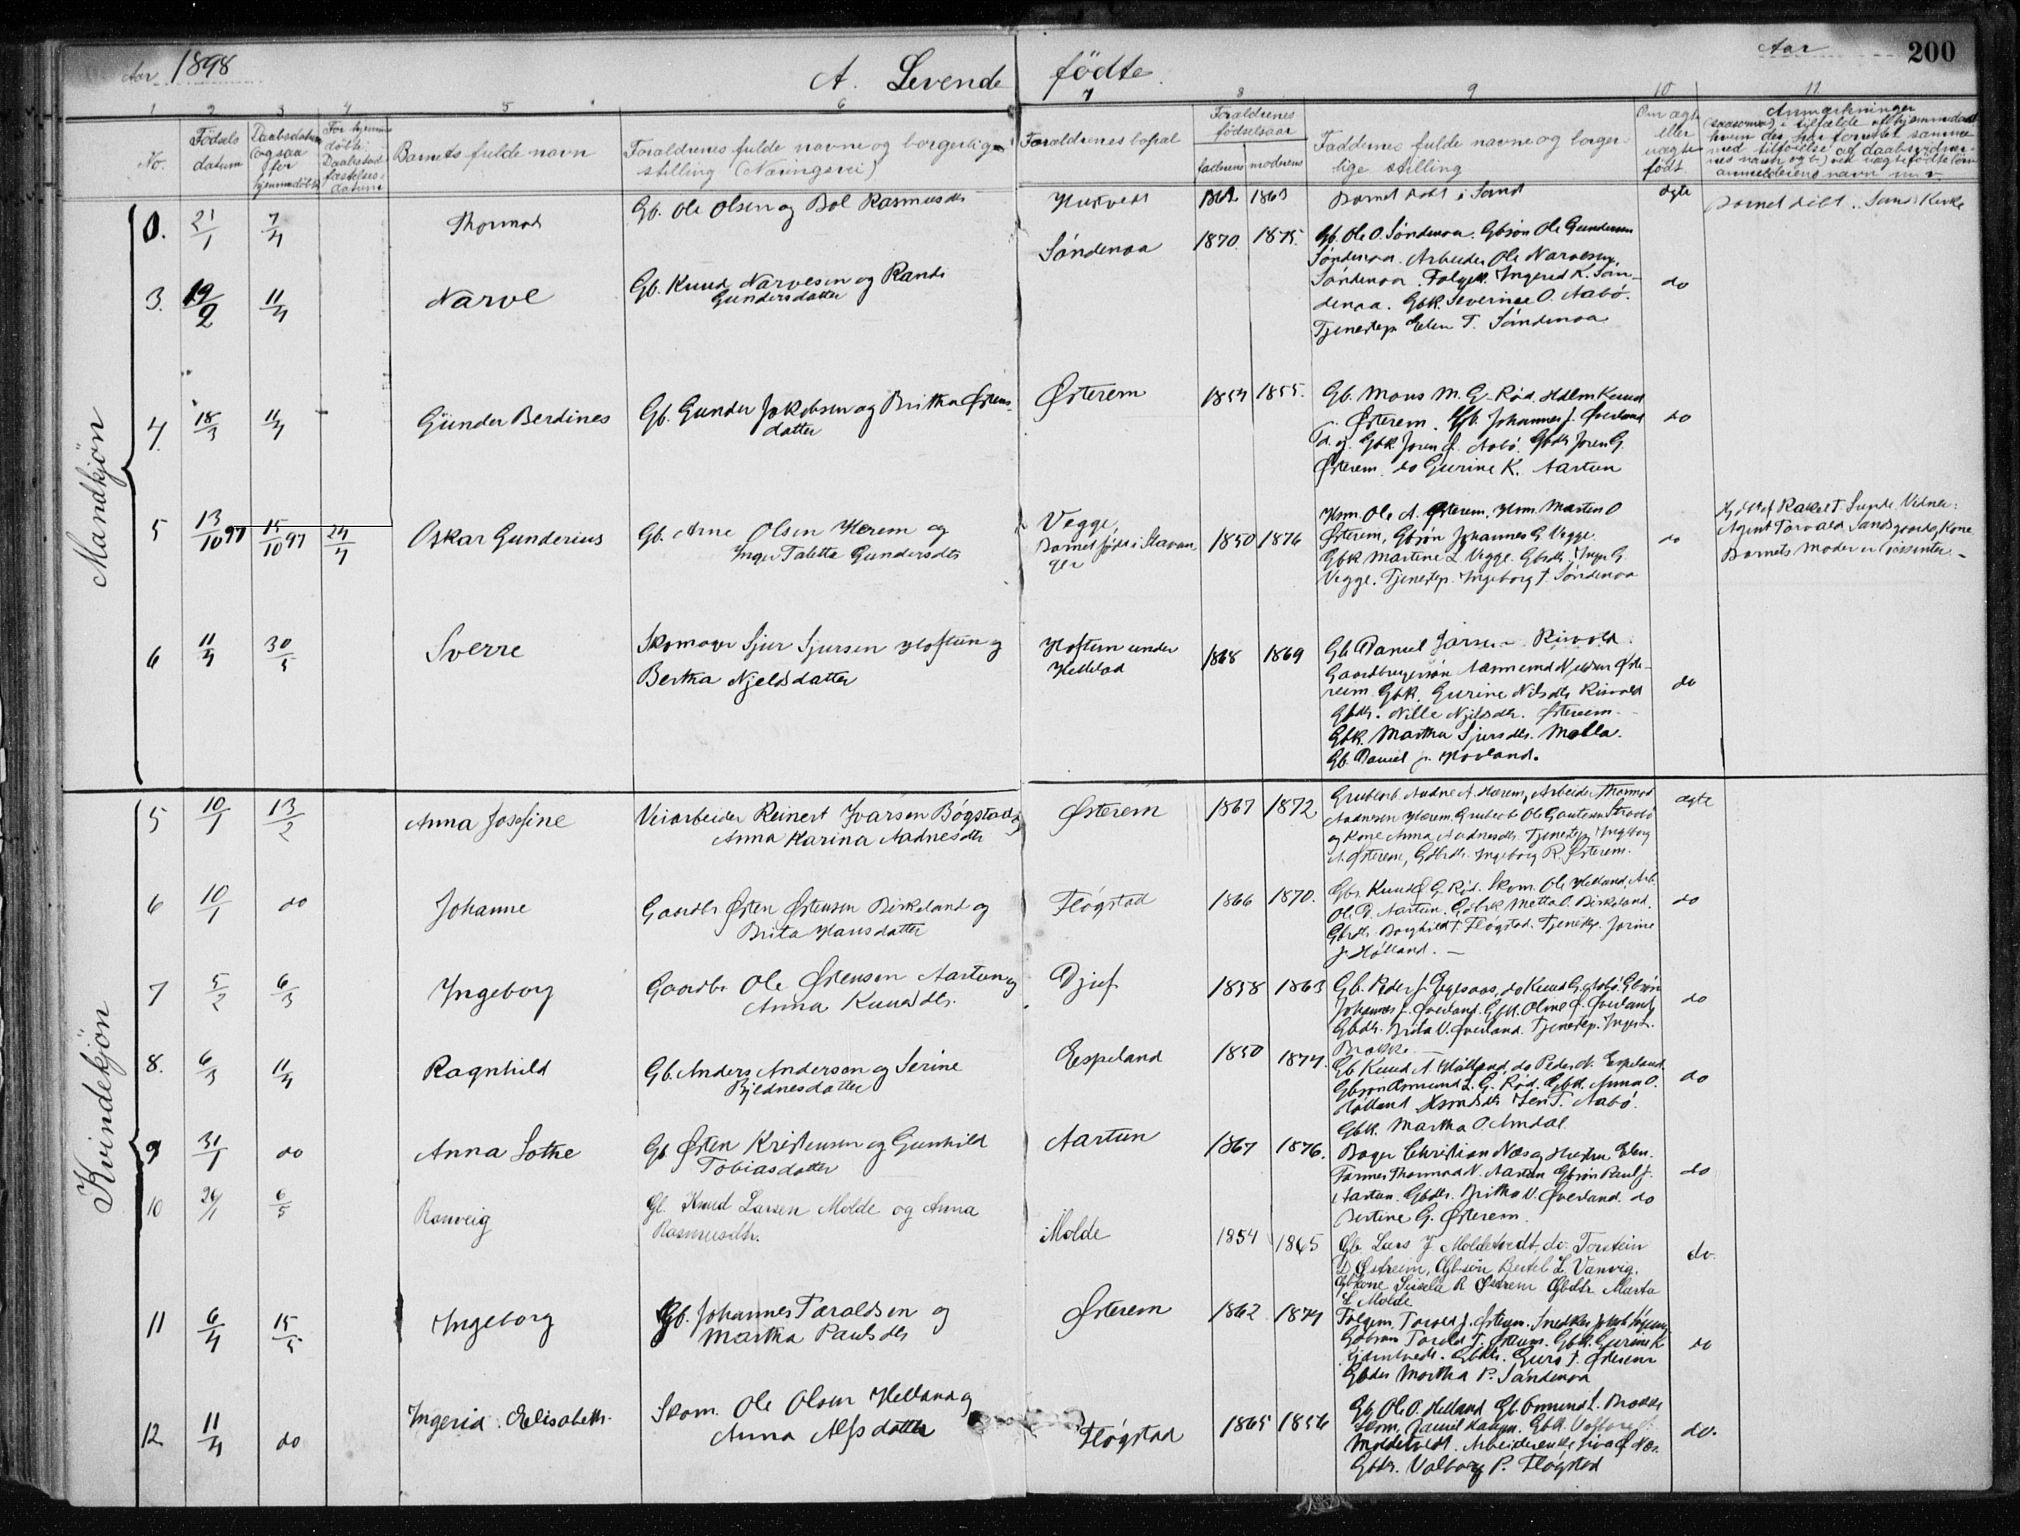 Aar 1898
A. Levende fødte.
Aar
200
1 2 3 4 5 6 7 8 9 10 11
No.
Fødsels datum
Daabsdatum (ogsaa for hjemmedøbte)
For hjemmedøbte: Daabstadfæstelsesdatum
Barnets fulde navn
Forældrenes fulde navne og borgerlige stilling (Næringsvei)
Forældrenes bopæl
Forældrenes fødselsaar
faderens moderens
Faddernes fulde navne og borgerlige stilling
Om ægte eller uægte født
Anmærkninger
Mandkjøn
21/1 7/4 Thormod Gb. Ole Olsen og Bol Rasmusdtr 1863 Barnet døbt i Sand ægte Barnet døbt i Sands Kirke
3. 19/2 11/4 Narve Gb. Knud Narvesen og Randi
Gundersdatter
Søndenaa 1870. 1875. Gb. Ole O. Søndenaa. Gbsøn Ole Gundersen
Søndenaa. Arbeider Ole Narvesen,
Søndenaa. Folgek. Ingerid K. Søn-
denaa. Gbk. Severine O. Aabø.
Tjenestep. Elen T. Søndenaa
do
4. 18/3 11/4 Gunder Berdines Gb. Gunder Jakobsen og Britha Østens-
datter
Østerem 1854 1855. Gb. Mons M. G. Rød. Knud
Østerem. Gb. Johannes J. Øverland
Gbk Joren J. Aabø. Gbdtr Joren G.
Østerem. do Gurine K. Aartun
do
5 13/10 97 15/10 97 24/4 Oskar Gunderius Gb. Arne Olsen Hærem og
Inger Talette Gundersdtr
Vegge,
Barnet født i Stavan-
ger
1850 1876 Hsm. Ole A. Østerem, Hsm. Morten O
Østerem, Gbsøn Johannes G Vegge.
Gbk Martine L Vegge. Gbrdtr. Inger G.
Vegge. Tjenestep. Ingeborg T. Søndenaa
do
Rakel T. Sunde Vidne:
Agent Torvald Sandsgaard og Kone
Barnets Moder er Dissenter. –
6 11/4 30/5 Sverre Skomager Sjur Sjursen Hoftun og
Bertha Njeldsdatter
Hoftun under
1868 1869 Gb Daniel Risvold.
Gaardbrugersøn Aanund Njeldsen Øste-
reim. Gbk. Gurine Nilsdtr Risvold
Gbdtr. Nille Njeldsdtr. Østereim.
Gbk. Martha Sjursdtr. Molla.
Gb. Daniel J. Hovland.
do
Kvindekjøn
5 10/1 13/2 Anna Josefine Veiarbeider Reinert Ivarsen Bøgstad og
Anna Karina Aadnesdtr
Østerem 1867 1872 Grubearb. Aadne A. Hærem, Arbeider Thormod
Aadnesen Hærem. Grubearb. Ole Gautesen
og Kone Anna Aadnesdtr. Tjenestep Ingeborg
A. Østerem, Gdbrdtr. Ingeborg R. Østerem.
ægte
6 10/1 do Johanne Gaardbr Østen Østensen Birkeland og
Brita Hansdatter
Fløgstad 1866 1870. Gbr. Knud G. Rød. Skom. Ole Helland, Arb.
Ole D. Aartun. Gdbrk Metta O. Birkeland.
Gbrdtr. Borghild T. Fløgstad. Tjenestep. Jorine
J. Hølland. –
do
7 5/2 6/3 Ingeborg Gaardbr Ole Østensen Aartun og
Anna Knudsdtr.
Djuf 1858 1863 Gb. Peder J. do Knud G. Aabø. Gbsøn
Johannes J. Øverland. Gbk. Oline J. Øverland,
Gbdtr. Brita V. Øverland. Tjenestep.
Brakke.
do
8. 6/3 11/4 Ragnhild Gb. Anders Anderson og Serine
Bjednesdatter
Espeland 1850 1874. Gb Knud A. Hølland, do Peder N. Espeland.
Gbsøn Osmund L. G. Rød. Gbk. Anna O.
Hølland T. Aabø.
Gbk. Martha O Amdal.
do
9 31/1 do Anna Lothe Gb Østen Kristensen og Gunhild
Tobiasdatter
Aartun 1867 1876. Bager Christian Næs og Hustru Elen.
Farmer Thormod N. Aartun Gbsøn Paul J.
Aartun. Gbdtr. Britha V. Øverland. do
Bertine G. Østerem.
do
10 6/5 Ranveig Gb. Knud Larsen Molde og Anna
Rasmusdtr.
Molde 1854 1865 Gb Lars J Moldetvedt, do. Torstein
D Østreim, Gbsøn Bertel L. Vanvig.
Gbkone Sisela R Østrem Gbdtr Marta
L Molde
do.
11 6/4 15/5 Ingeborg Gb. Johannes Taraldsen og
Martha Paulsdtr
Østerem 1862 1874 Folgem. Tarald J. Østrem. Snedker
Gdbsøn Tarald T. Østrem. Gbk. Gurine K
Gbdtr. Guro T. Østerem
Gbdtr Martha P. Søndenaa
do
12 11/4 do Ingerid Elisabeth. Skom. Ole Olsen Helland og
Anna Alfsdatter
Fløgstad 1865 1856 Gb. Ole O. Helland Gb. Osmund L. Brakke
Gbk.
Moldetvedt. Næs.
Gbdtr. Valborg P. Fløgstad
do.